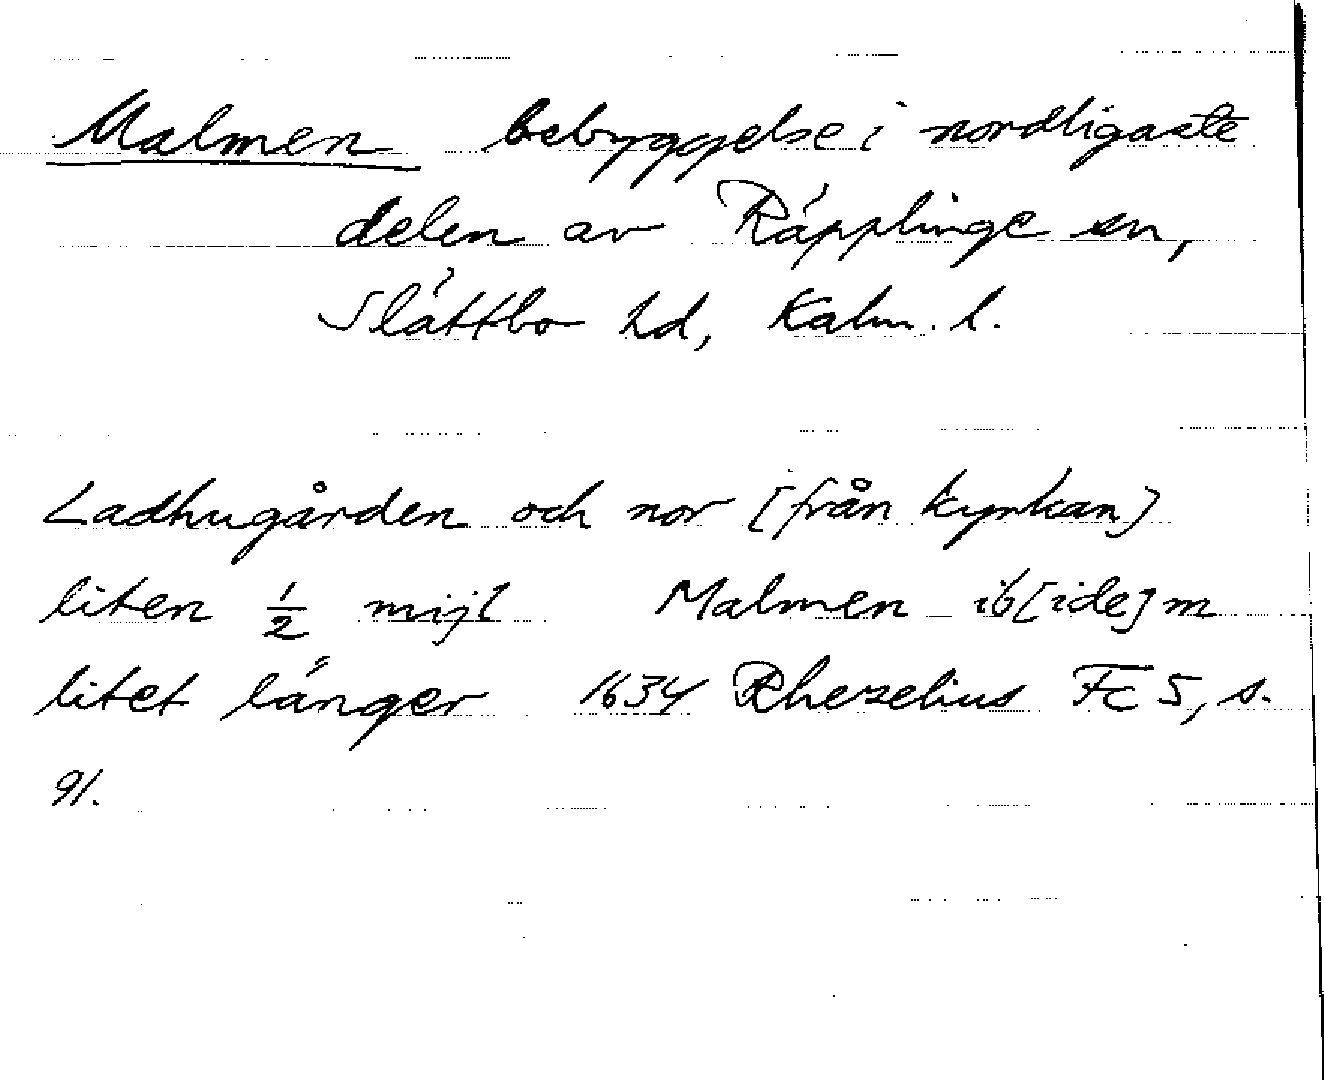 Malmen bebyggelse i nordligaste
delen av Räpplinge sn,
Slättbo hd, Kalm. l.
Ladhugården och nor [från kyrkan]
liten ½ mijl Malmen ib[ide]m
litet länger 1634 Rhezelius Fc 5, s.
91.